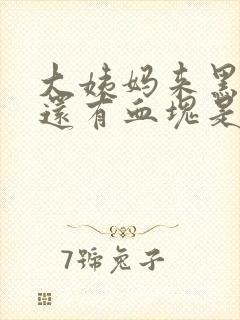 大姨妈来黑
還有血塊是
7號兔子